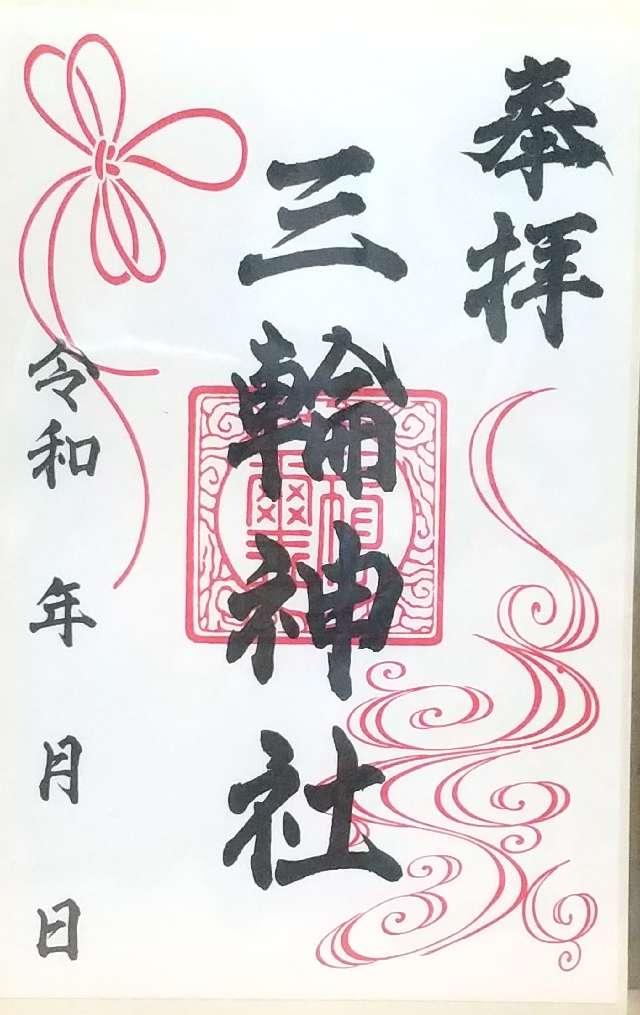 奉拝
三輪神社
令和 年 月 日